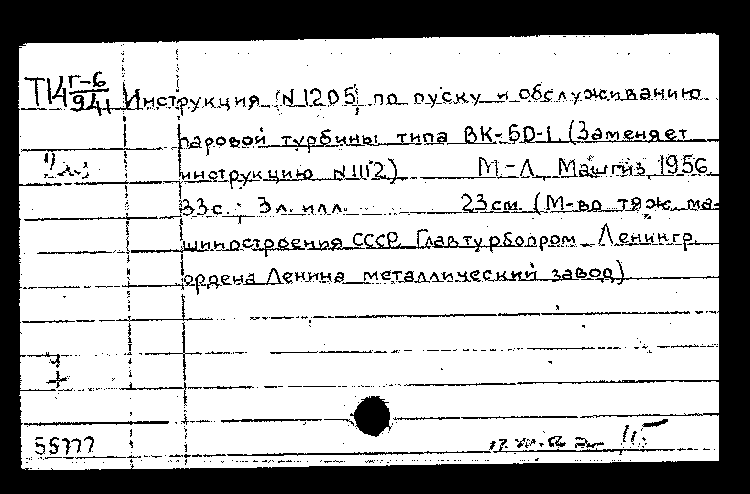 Т14 Г-6/941 Инструкция (N1205) по пуску и обслуживанию
паровой турбины типа ВК-50-1. (Заменяет
инструкцию N1112) М-Л, Машгиз, 1956.
33с.; 3л. илл. 23см. (М-во тяж. ма-
шиностроения СССР. Главтурбопром. Ленингр.
ордена Ленина металлический завод)
55777